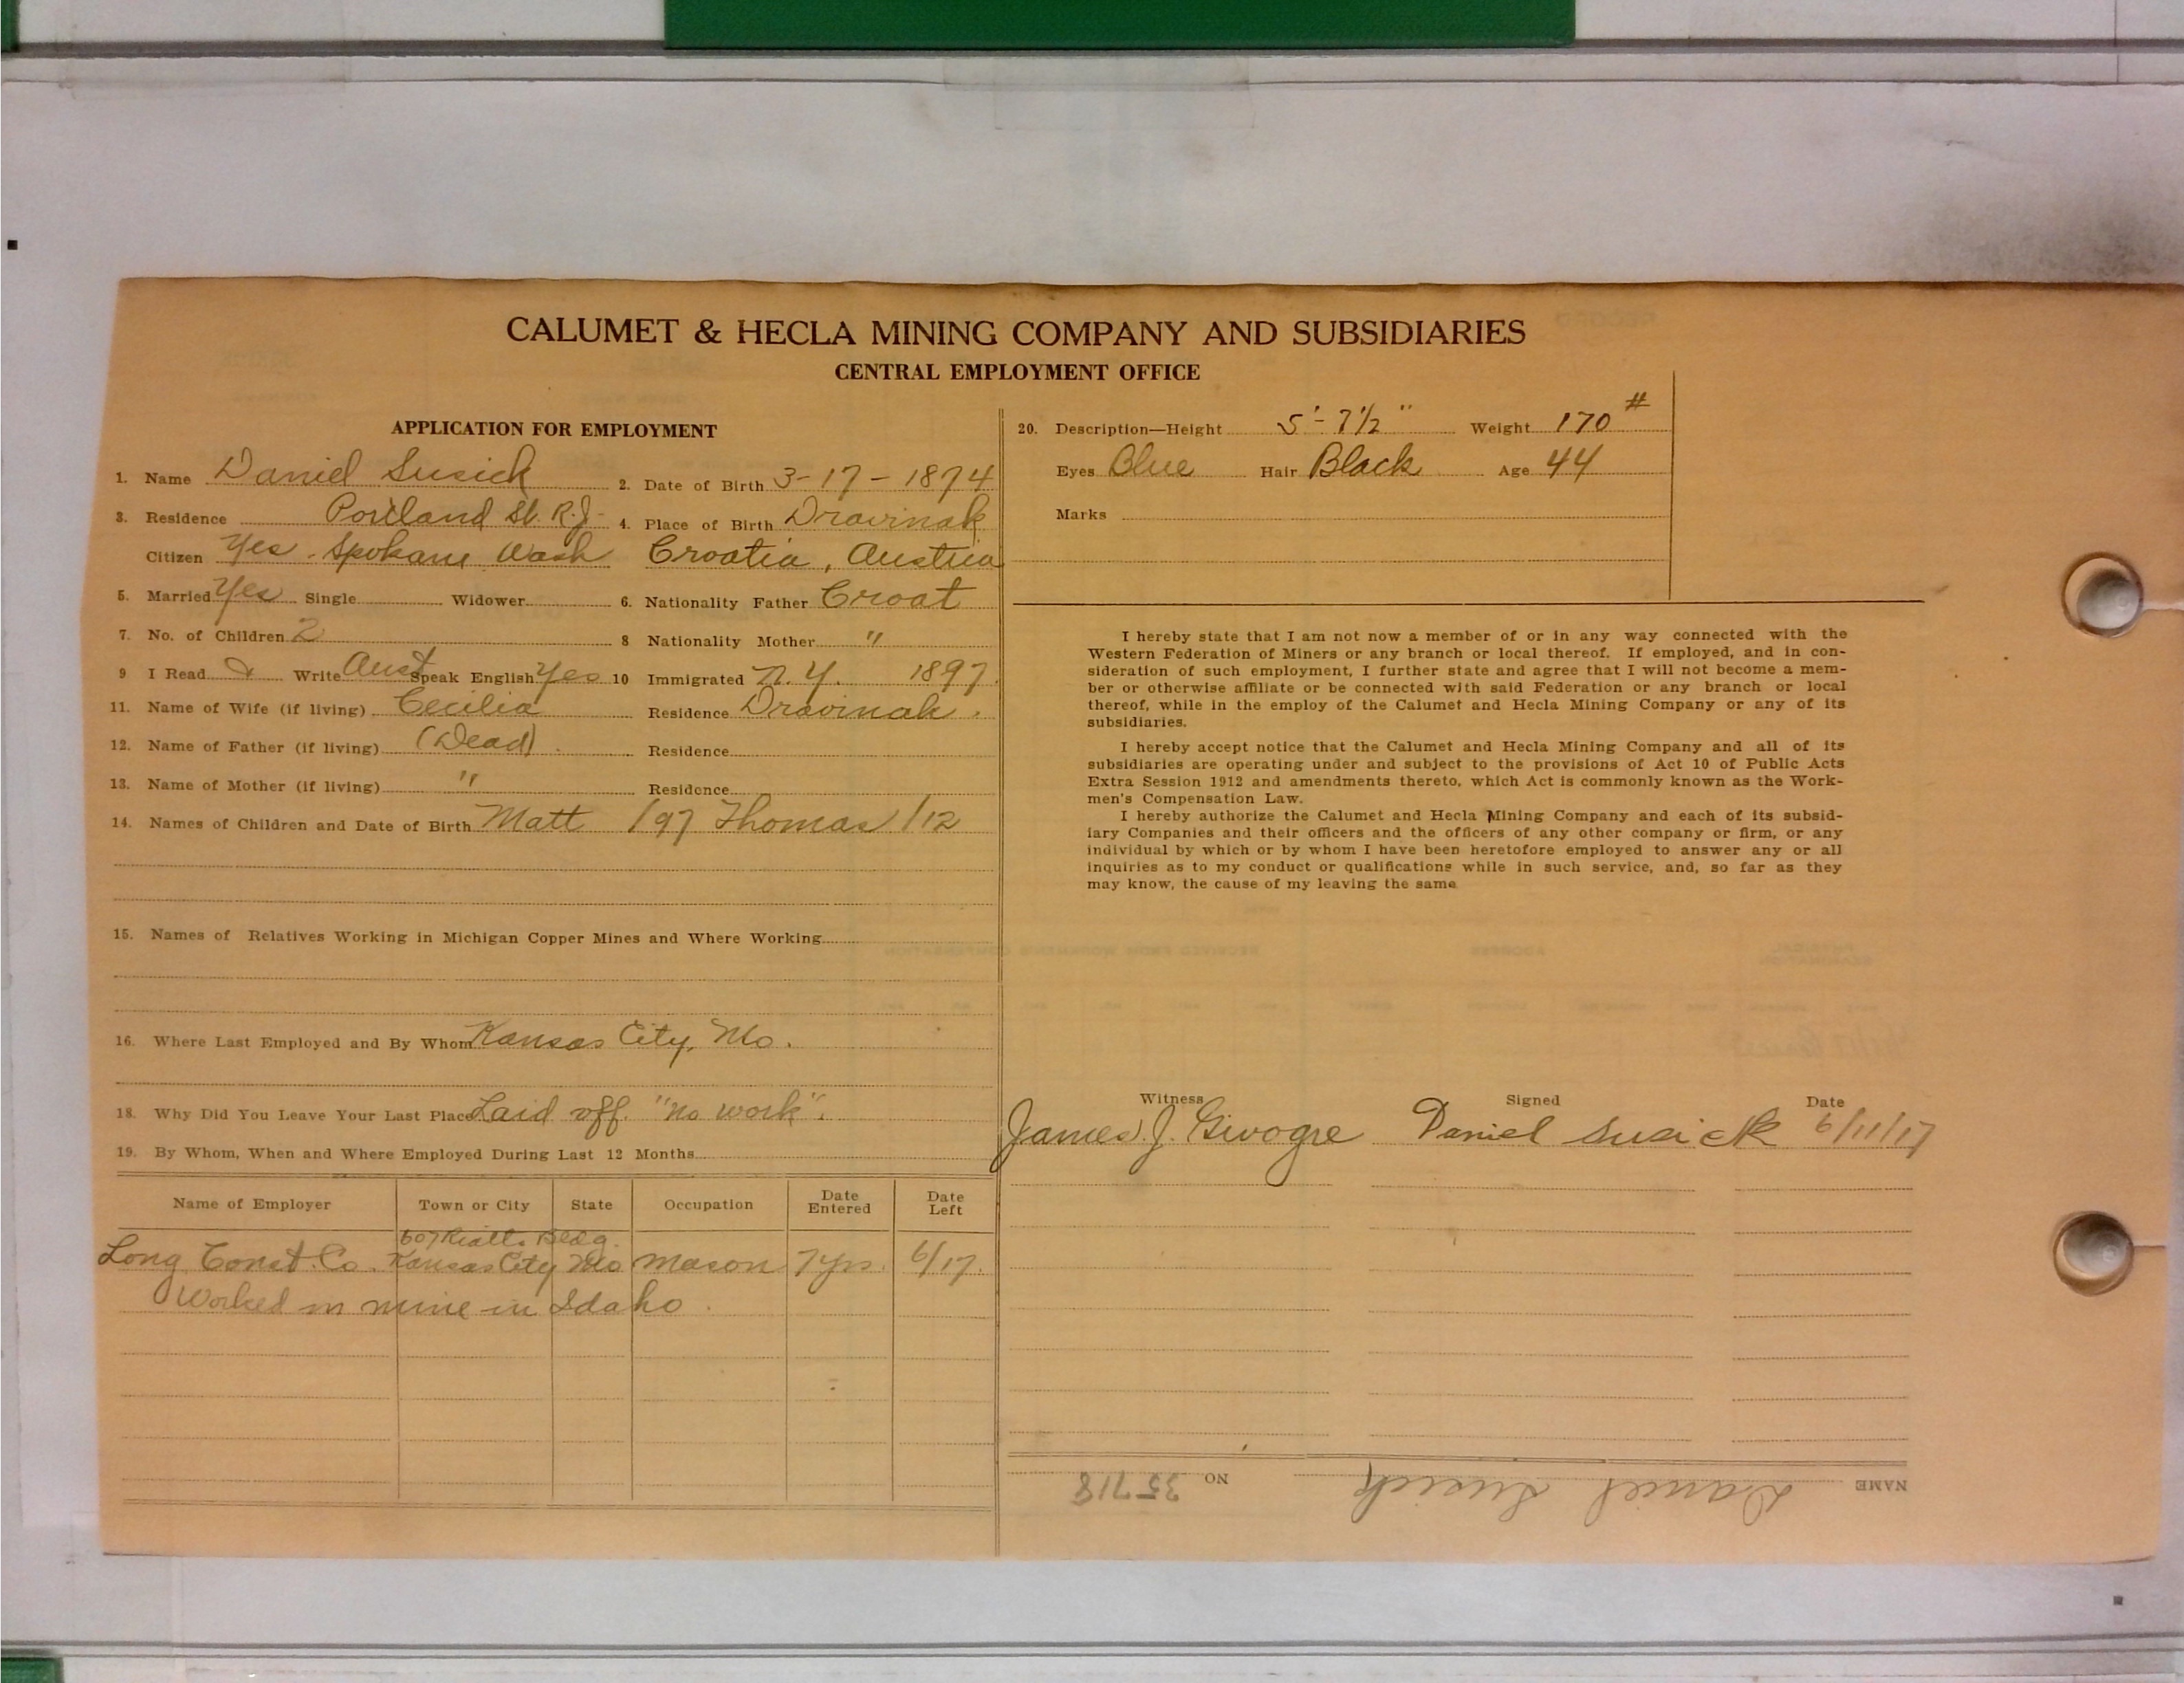 CALUMET & HECLA MINING COMPANY AND SUBSIDIARIES
CENTRAL EMPLOYMENT OFFICE
APPLICATION FOR EMPLOYMENT
1. Name Daniel Susick 2. Date of Birth 3-17-1874
3. Residence Portland St. R.J. 4. Place of Birth Dravinak
Citizen Yes - Spokane Wash Croatia, Austria
5. Married Yes Single Widower 6. Nationality Father Croat
7. No. of Children 2 8 Nationality Mother "
9 I Read & Write Aust Speak English Yes 10 Immigrated N.Y. 1897
11. Name of Wife (if living) Cecilia Residence Dravinak.
12. Name of Father (if living) (Dead). Residence
13. Name of Mother (if living) " Residence
14. Names of Children and Date of Birth Matt /97 Thomas /12
15. Names of Relatives Working in Michigan Copper Mines and Where Working
16. Where Last Employed and By Whom Kansas City, Mo.
18. Why Did You Leave Your Last Place Laid off. "no work".
19. By Whom, When and Where Employed During Last 12 Months
Name of Employer Town or City State Occupation Date Entered Date Left
607 Rialto Bldg.
Long Const. Co. Kansas City Mo Mason 7 yrs. 6/17.
Worked in mine in Idaho.
20. Description—Height 5'-7 1/2" Weight 170#
Eyes Blue Hair Black Age 44
Marks
I hereby state that I am not now a member of or in any way connected with the
Western Federation of Miners or any branch or local thereof. If employed, and in con-
sideration of such employment, I further state and agree that I will not become a mem-
ber or otherwise affiliate or be connected with said Federation or any branch or local
thereof, while in the employ of the Calumet and Hecla Mining Company or any of its
subsidiaries.
I hereby accept notice that the Calumet and Hecla Mining Company and all of its
subsidiaries are operating under and subject to the provisions of Act 10 of Public Acts
Extra Session 1912 and amendments thereto, which Act is commonly known as the Work-
men's Compensation Law.
I hereby authorize the Calumet and Hecla Mining Company and each of its subsid-
iary Companies and their officers and the officers of any other company or firm, or any
individual by which or by whom I have been heretofore employed to answer any or all
inquiries as to my conduct or qualifications while in such service, and, so far as they
may know, the cause of my leaving the same
Witness Signed Date
James J. Daniel Susick 6/11/17
NAME Daniel Susick NO 35718